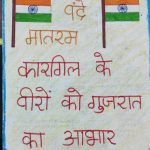 वंदे
मातरम
कारगील के
वीरों को गुजरात
का आभार